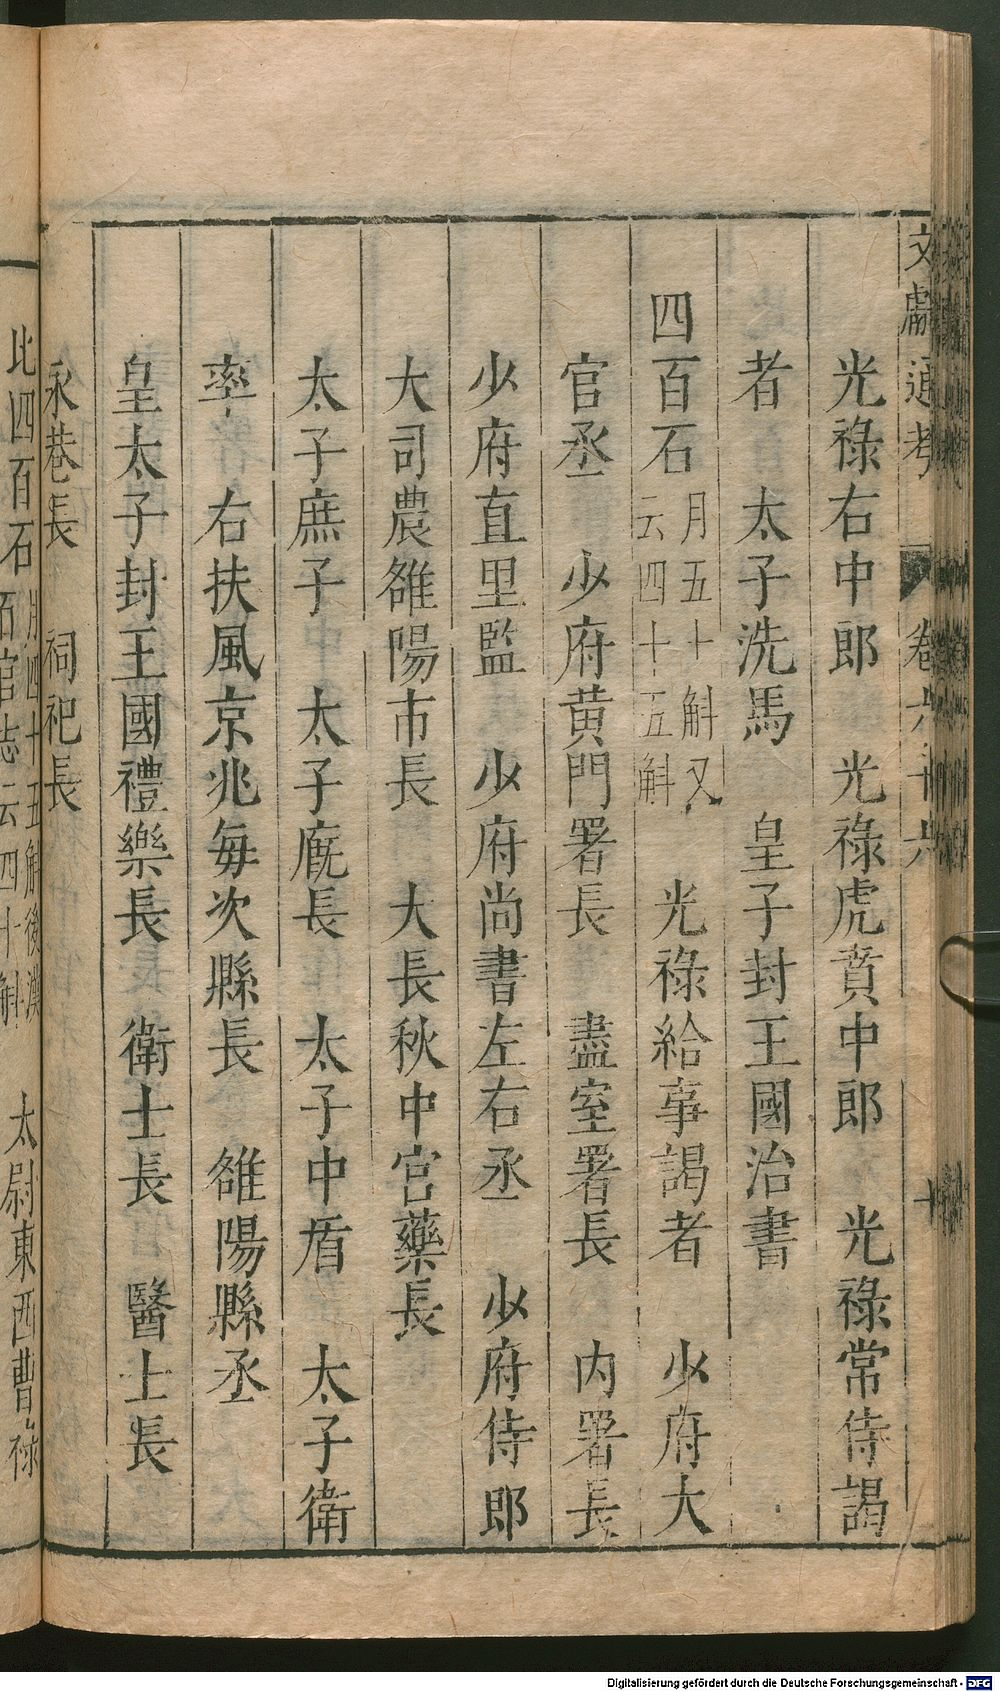 文獻通考　卷六十六　十
光祿右中郎　光祿虎賁中郎　光祿常侍謁
者　太子洗馬　皇子封王國治書
四百石　月五十斛又云四十五斛　光祿給事謁者　少府大
官丞　少府黄門署長　盡室署長　内署長
少府直里監　少府尚書左右丞　少府侍郎
大司農雒陽市長　大長秋中宮藥長
太子庶子　太子廐長　太子中盾　太子衛
率　右扶風京兆每次縣長　雒陽縣丞
皇太子封王國禮樂長　衛士長　醫士長
永巷長　祠祀長
比四百石　月四十五斛後漢百官志云四十斛　太尉東西曹祿
Digitalisierung gefördert durch die Deutsche Forschungsgemeinschaft - DFG